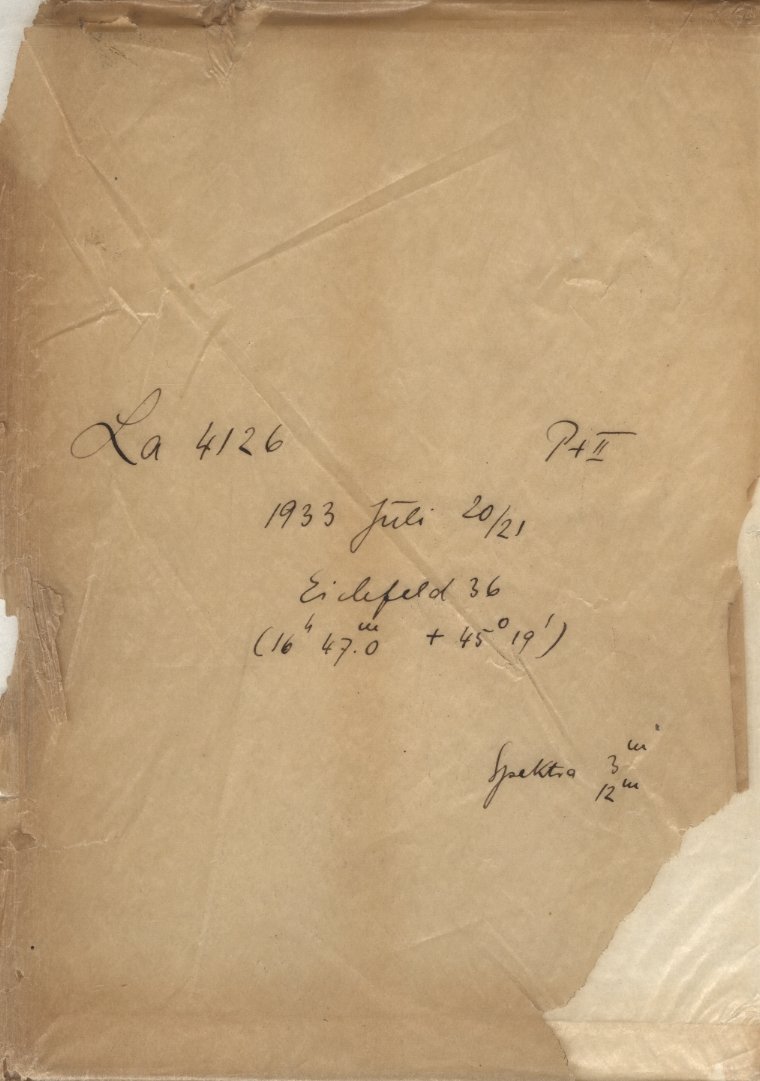 La 4126 P+II
1933 Juli 20/21
Eichfeld 36
(16ʰ 47.ᵐ0 + 45⁰ 19')
Spektra 3ᵐ
12ᵐ